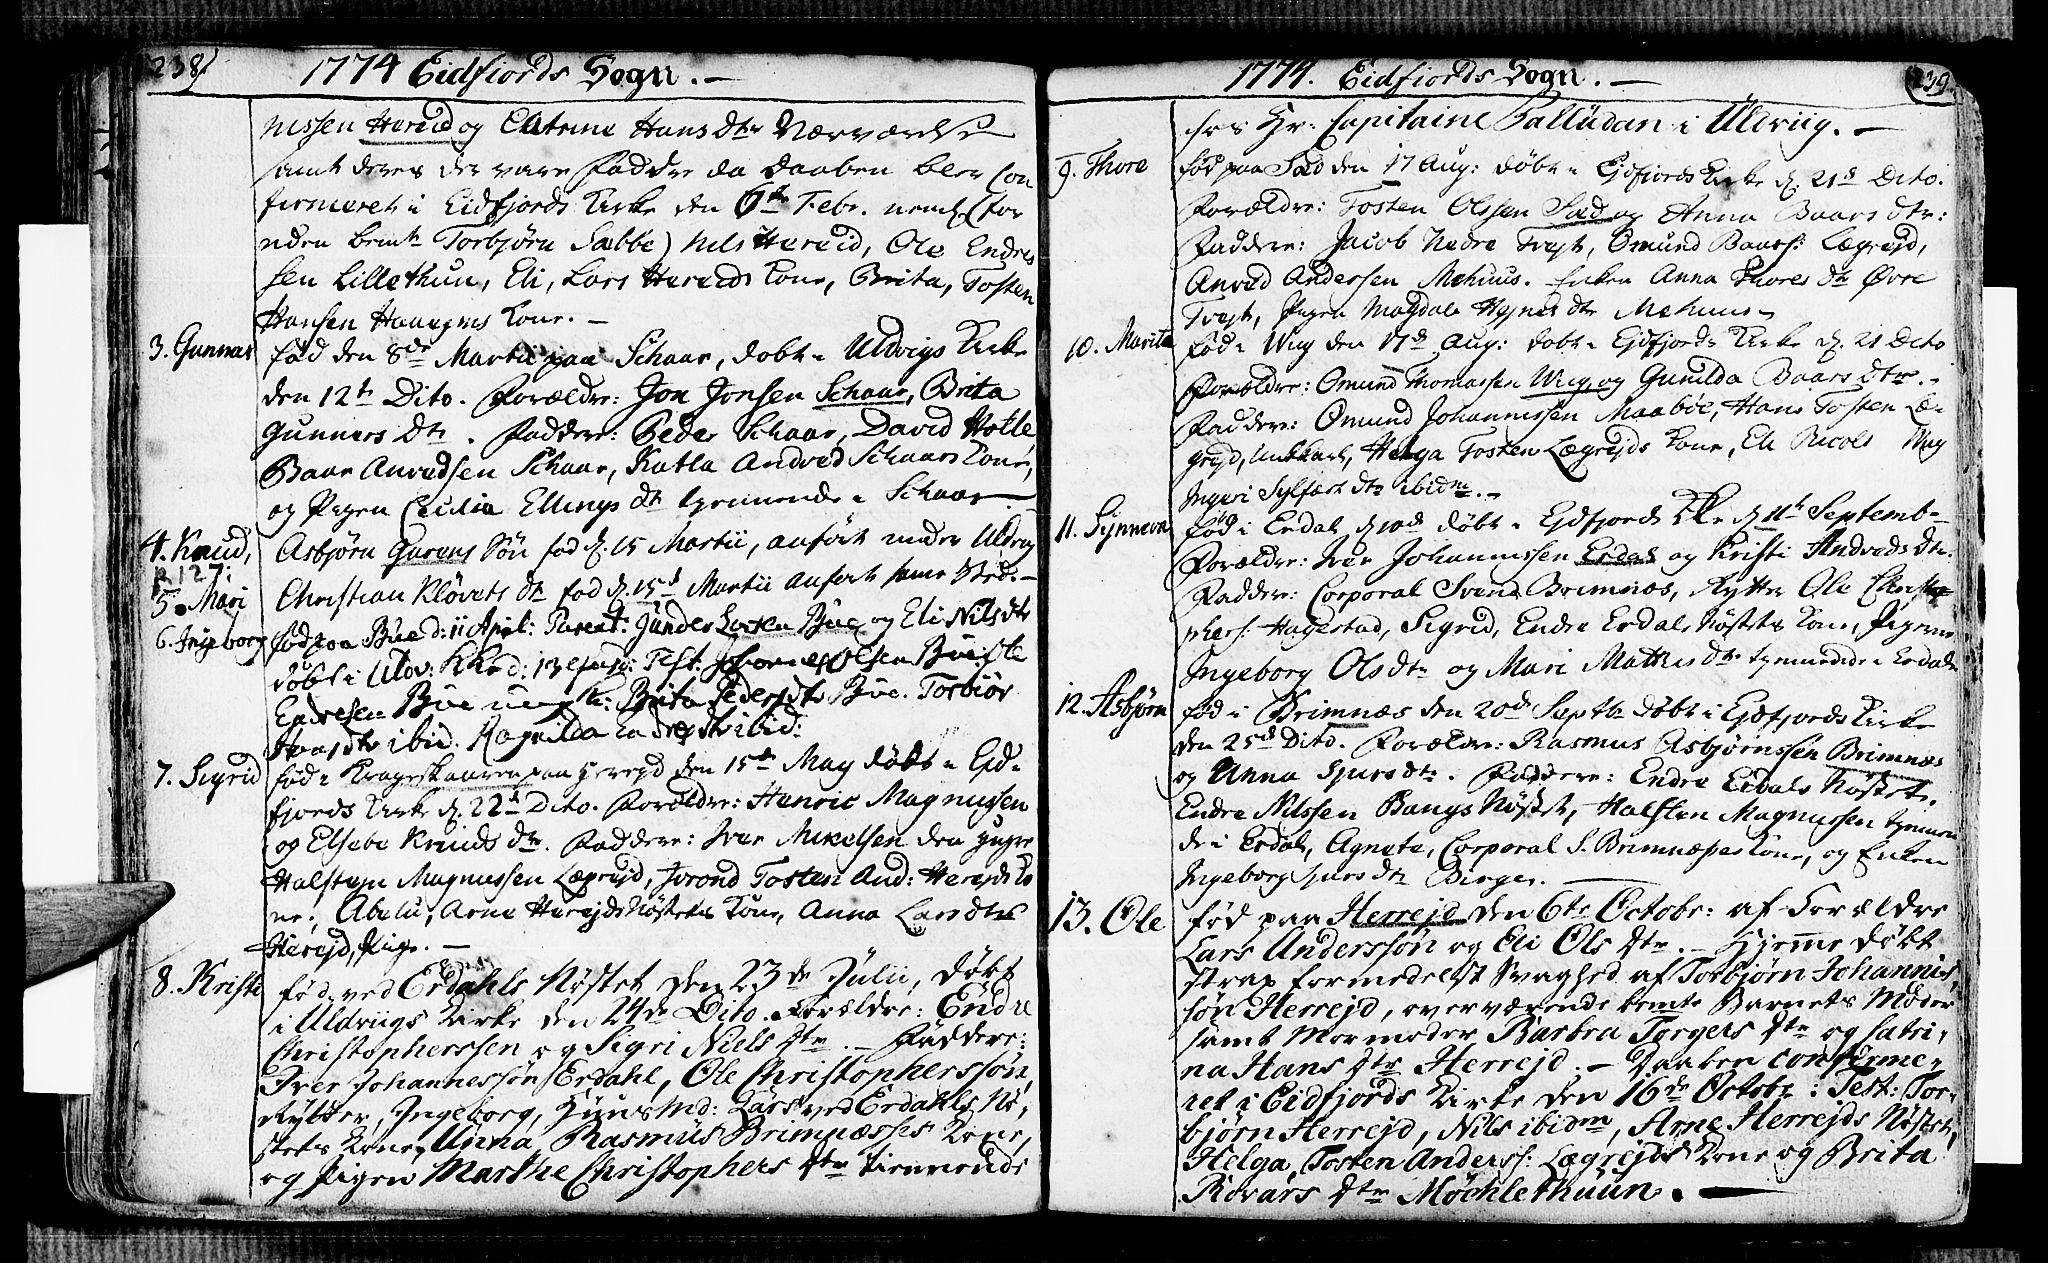 238
1774 Eidfiords Sogn. —
nissen Hereid og Catrine Hans dtr Nærværelse
samt deres der vare Faddre da Daaben blev Con
firmeret i Eidfjords Kirke den 6te Febr. neml. (for
uden bemte Torbjørn Sæbbe) Nils Hereid, Ole Endres
sen Lillethun, Eli, Lars Hereids Kone, Brita, Tosten
Hansen Kone. —
3. Gunnar
fød den 8de Martii paa Schaar, døbt i Uldvigs Kirke
den 12te Dito. Forældre: Jon Jonsen Schaar, Brita
Gunners dtr. Faddere: Peder Schaar, David Hotle
Baar Anvedsen Schaar, Katla Andved Schaars Kone,
og Pigen Cecilia Ellings dtr tjennende i Schaar —
4. Knud,
p. 127.
Asbjørn Garens Søn fød d. 15 Martii, anført under Uldvig
5. Mari
Christian Kløvets dtr fød d. 15d Martii anført samme Sted. —
6. Ingeborg
fød paa Bue d: 11 April: Parent: Gunder Larsen Bue og Eli Nilsdtr
døbt i Uldv: Kke d: 13 ejusd: Test: Johannes Olsen Bue, Ole
Endresen Bue ung K: Brita Pedersdtr Bue. Torbiør
ibid. Ragnilda ibid:
7. Sigrid
fød i Krageskaaren paa Hereyd den 15de May døbt i Eid-
fjords Kirke d. 22d Dito. Forældre: Henric Magnussen
og Elsebe Knuds dtr. Faddere: Iver Mikelsen den yngre
Halsteyn Magnussen Lægrejd, Jorond Tosten And: Herejds Ko
ne, Abelu, Arne HerejdsNøstets Kone, Anna Larsdtr
Herejd, Pige. —
8. Kristi
fød ved Erdahls Nøstet den 23de Julii, døbt
i Uldviigs Kirke den 24de Dito. Forældre: Endre
Christopherssen og Sigri Niels dtr. — Faddere:
Iver Johannessøn Erdahl, Ole Christopherssøn,
Rytter, Ingeborg, Huusmd: Lars ved Erdahls Nø,
stets Kone, Anna Rasmus Brimnæsses Kone,
og Pigen Marthe Christophers dtr tiennende
239.
1774. Eidfiords Sogn. —
hos Hr: Capitaine Palludan i Uldviig. —
9. Thore
fød paa Sæd den 17 Aug: døbt i Ejdfjords Kirke d. 21d Dito.
Forældre: Tosten Olssen Sæd og Anna Baars dtr:
Faddere: Jacob Nedre Tvejt, Omund Baars: Lægrejd,
Anved Andersen Mehuus. Enken Anna Thores dtr Øvre
Tvejt, Pigen Magdale dtr Mehuus.
10. Marita
fød i Wiig den 17d Aug: døbt i Ejdfjords Kirke d. 21 Dito
Forældre: Omund Thomassen Wiig og Gunilda Baars dtr. -
Faddere: Omund Johannissen Maabøe, Hans Tosten Læ-
grejd, Unkkarl, Helga Tosten Lægrejds Kone, Eli Nicols Wiig
Ingeri Sylfæst dtr ibidm. -
11. Synneva
fød i Erdal d. 10d døbt i Ejdfjords Kke d. 11te Septemb-
Forældre: Iver Johannissen Erdal og Kristi Andveds dtr.
Faddere: Corporal Svend Brimnæs, Rytter Ole Christo-
phers: Hagestad, Sigrid, Endre Erdals Nøstets Kone, Pigerne
Ingeborg Ols dtr og Mari Mathis dtr tjennende i Erdal
12. Asbjørn
fød i Brimnæs den 20d Septbr døbt i Ejdfjords Kirke
den 25d Dito. Forældre: Rasmus Asbjørnssen Brimnæs
og Anna Sjurs dtr. Faddere: Endre Erdals Nøstet,
Endre Nilssen Bangs Nøstet, Halsten Magnussen tjennen
de i Erdal, Agneta, Corporal S. Brimnæses Kone, og Enken
Ingeborg Sjurs dtr Birger. —
13. Ole
fød paa Herrejd den 6te Octobr: af Forældre
Lars Anderssøn og Eli Ols dtr. — Hjemme døbt
strax formedelst Svaghed af Torbjørn Johannis,
søn Herrejd, overværende bemte Barnets Moder
samt Mormoder Barbra Torgers dtr og Catri,
na Hans dtr Herrejd. — Daaben confirme-
ret i Eidfjords Kirke den 16de Octobr: Test: Tor-
bjørn Herrejd, Nils ibidm, Arne Herrejds Nøstet,
Helga Tosten Anderss: Lægrejds Kone og Brita
Rovars dtr Møchlethuun. —